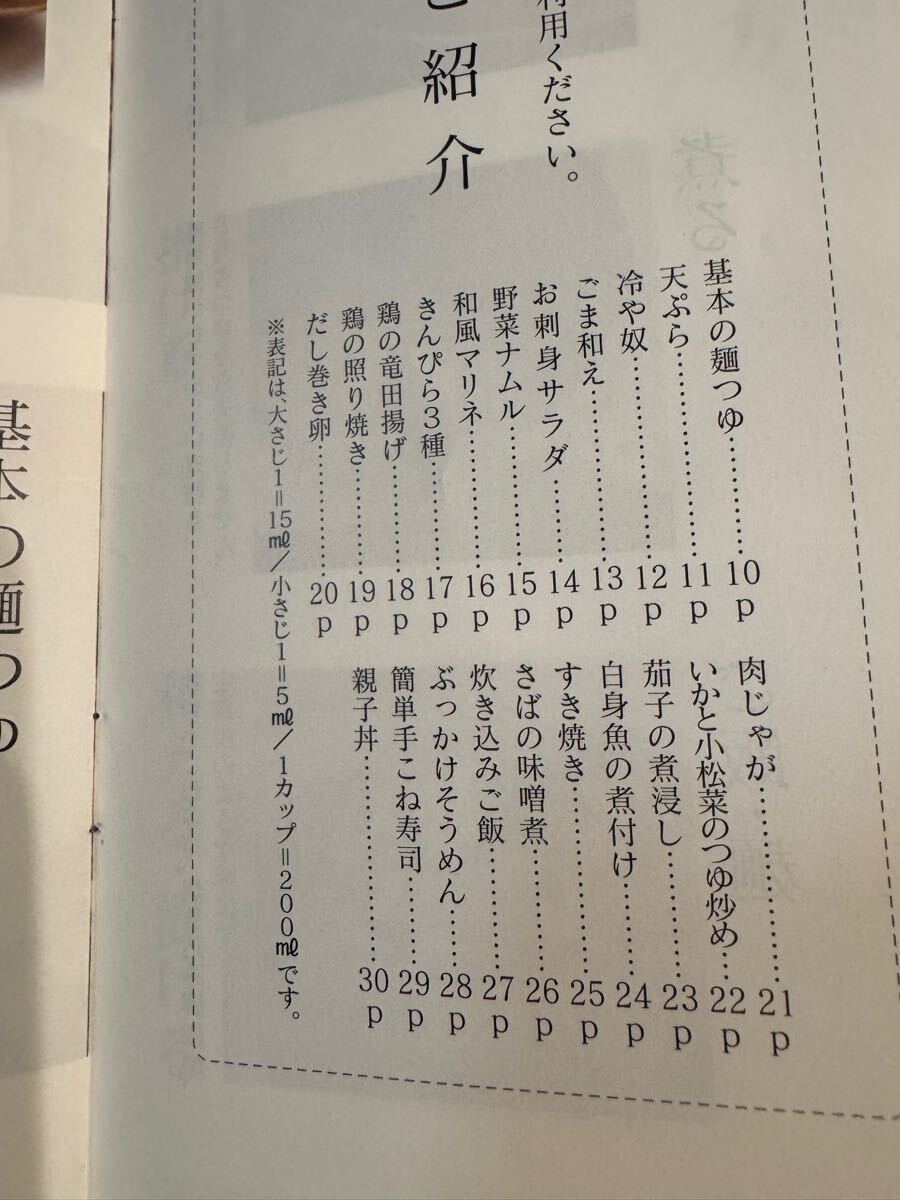 利用ください。
ご紹介
基本の麺つゆ…………10p
天ぷら…………………11p
冷や奴…………………12p
ごま和え………………13p
お刺身サラダ…………14p
野菜ナムル……………15p
和風マリネ……………16p
きんぴら3種…………17p
鶏の竜田揚げ…………18p
鶏の照り焼き…………19p
だし巻き卵……………20p
肉じゃが………………21p
いかと小松菜のつゆ炒め…22p
茄子の煮浸し…………23p
白身魚の煮付け………24p
すき焼き………………25p
さばの味噌煮…………26p
炊き込みご飯…………27p
ぶっかけそうめん……28p
簡単手こね寿司………29p
親子丼…………………30p
※表記は、大さじ1=15㎖/小さじ1=5㎖/1カップ=200㎖です。
基本の麺つゆ
煮る